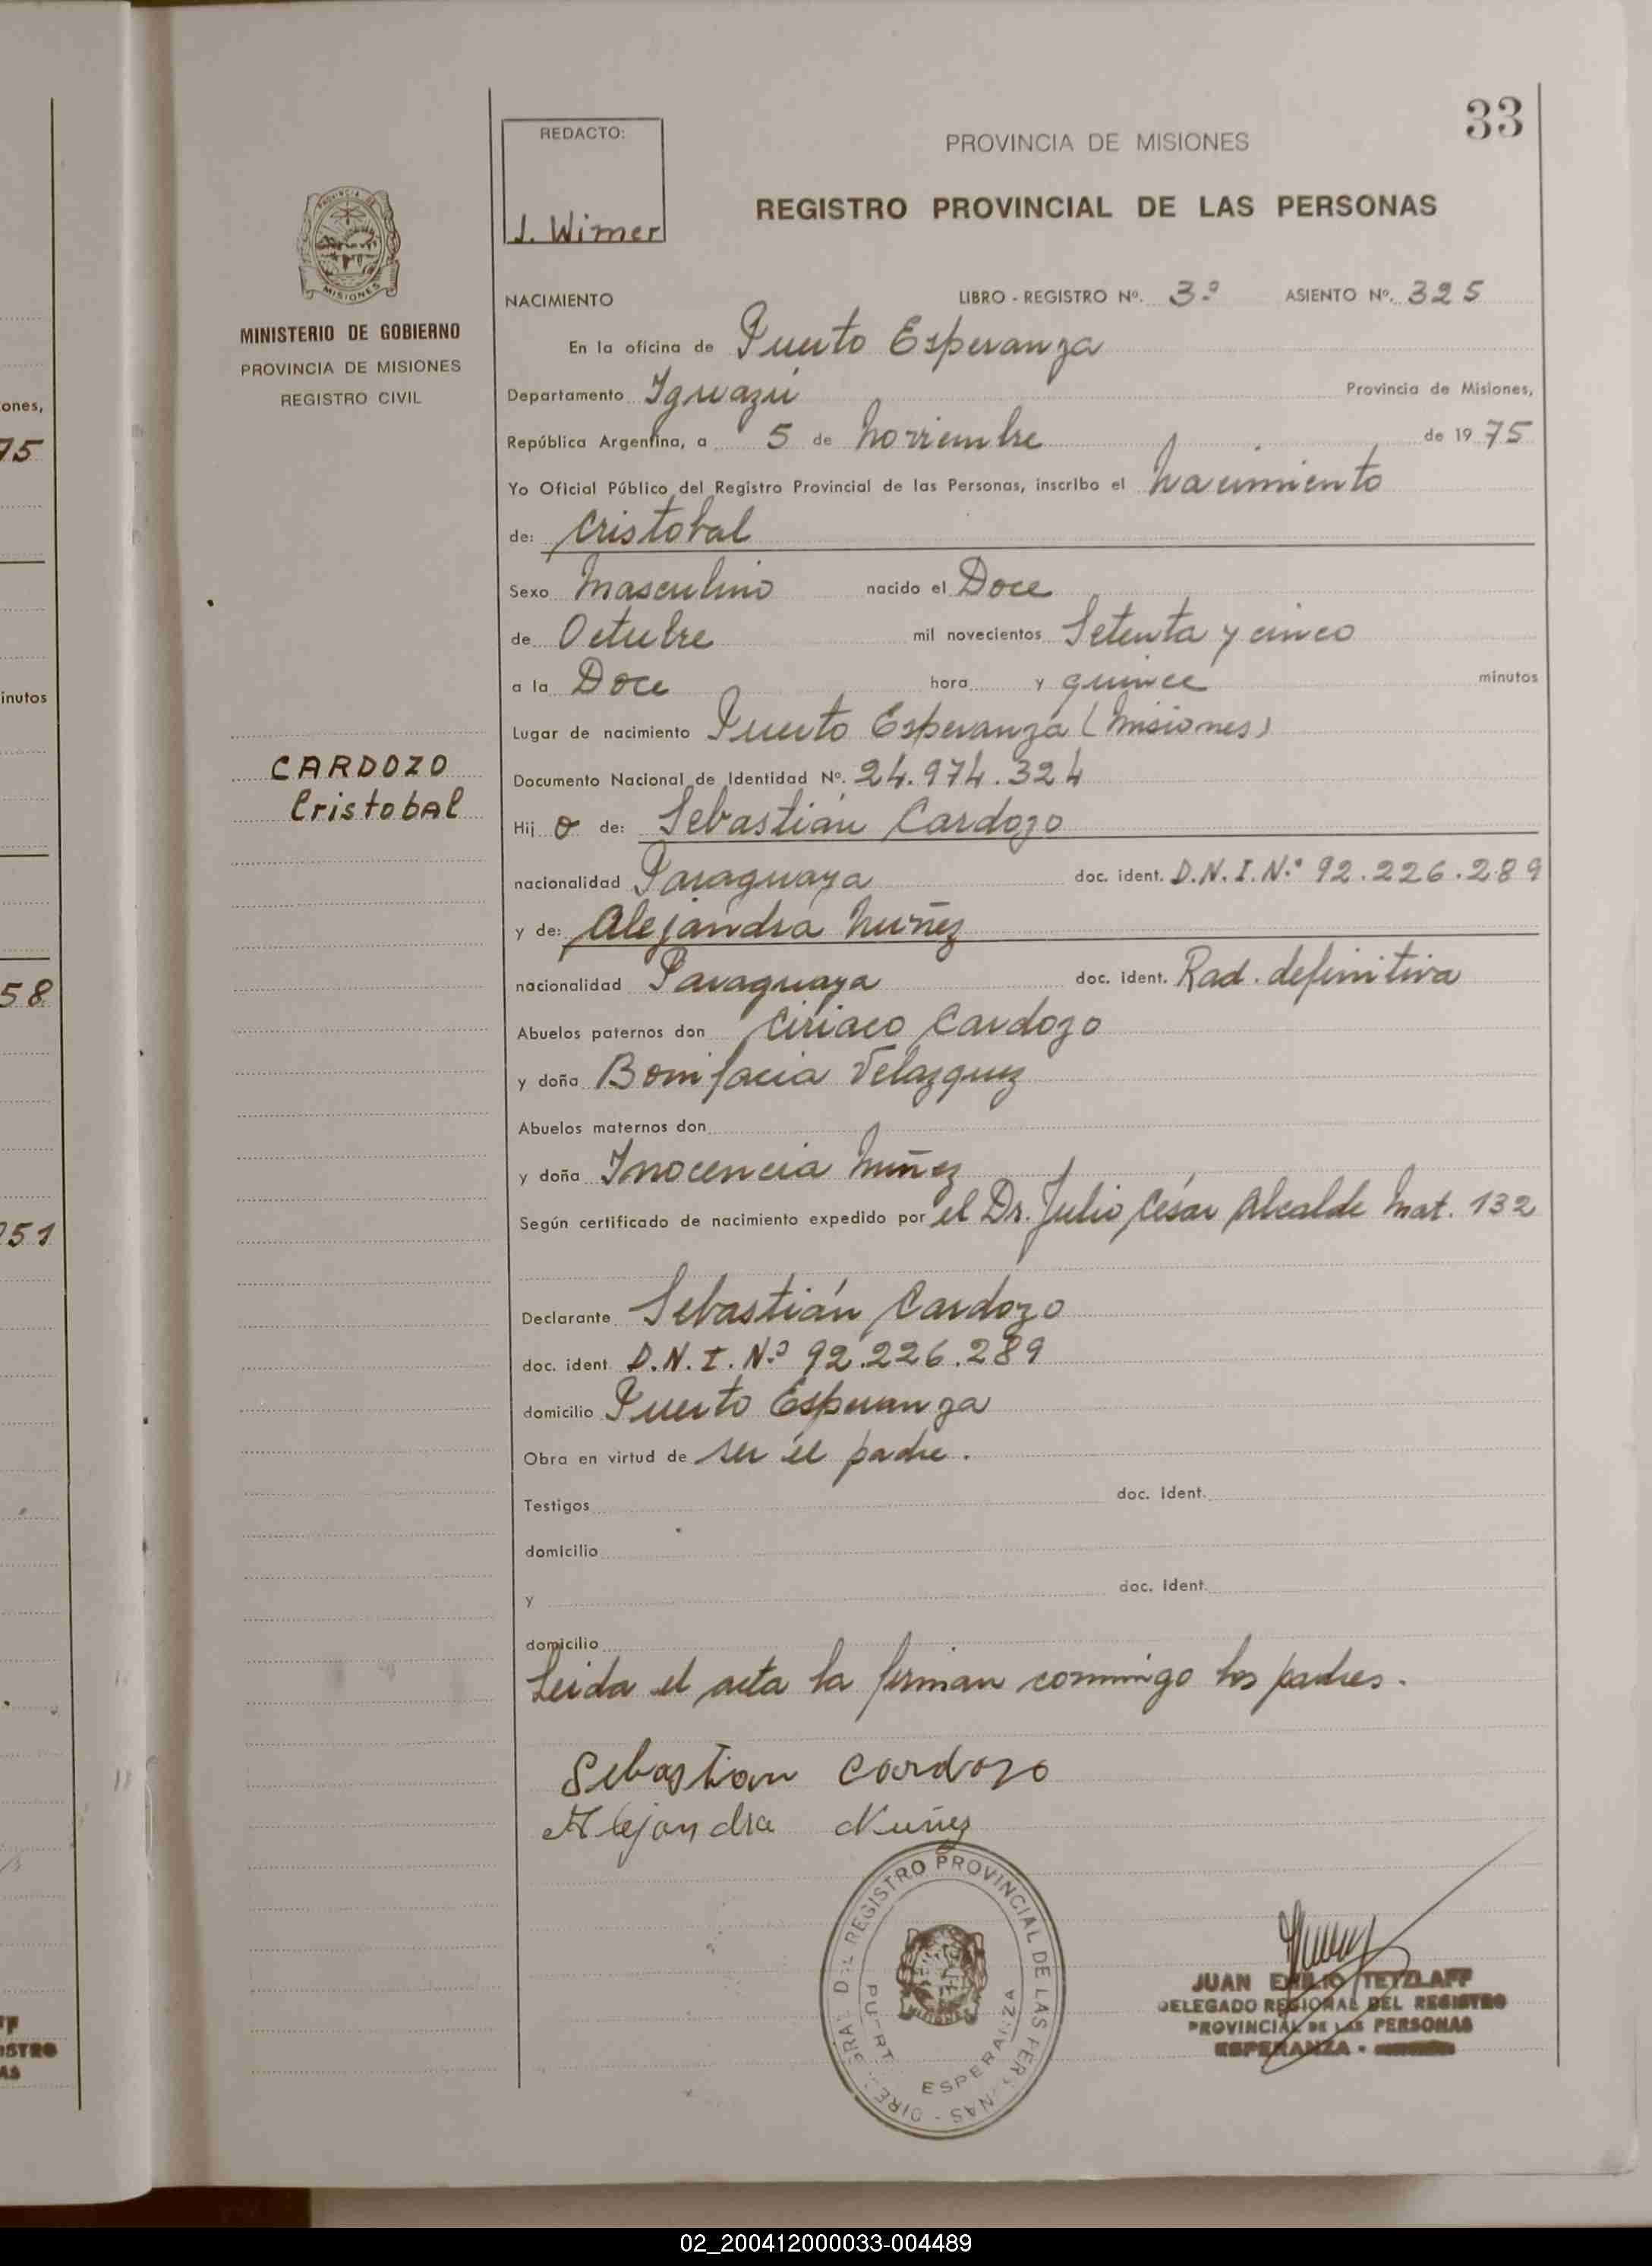 33
REDACTO:
J. Wimer
PROVINCIA DE MISIONES
REGISTRO PROVINCIAL DE LAS PERSONAS
MISIONES
MINISTERIO DE GOBIERNO
PROVINCIA DE MISIONES
REGISTRO CIVIL
NACIMIENTO LIBRO - REGISTRO Nº. 3º ASIENTO Nº. 325
En la oficina de Puerto Esperanza
Departamento Iguazú Provincia de Misiones,
República Argentina, a 5 de noviembre de 19 75
Yo Oficial Público del Registro Provincial de las Personas, inscribo el nacimiento
de: Cristobal
Sexo Masculino nacido el Doce
de Octubre mil novecientos Setenta y cinco
a la Doce hora y quince minutos
Lugar de nacimiento Puerto Esperanza (Misiones)
CARDOZO
Cristobal
Documento Nacional de Identidad Nº. 24.974.324
Hij o de: Sebastián Cardozo
nacionalidad Paraguaya doc. ident. D.N.I.Nº 92.226.289
y de: Alejandra Nuñez
nacionalidad Paraguaya doc. ident. Rad. definitiva
Abuelos paternos don Ciriaco Cardozo
y doña Bonifacia Velazquez
Abuelos maternos don
y doña Inocencia Nuñez
Según certificado de nacimiento expedido por el Dr. Julio César Alcalde Mat. 132
Declarante Sebastián Cardozo
doc. ident. D.N.I.Nº 92.226.289
domicilio Puerto Esperanza
Obra en virtud de ser el padre.
Testigos doc. ident.
domicilio
y doc. ident.
domicilio
Leida el acta la firman conmigo los padres.
Sebastian Cardozo
Alejandra Nuñez
REGISTRO PROVINCIAL DE LAS PERSONAS
ESPERANZA
JUAN EMILIO TETZLAFF
DELEGADO REGIONAL DEL REGISTRO
PROVINCIAL DE LAS PERSONAS
ESPERANZA -
ones,
75
inutos
58
251
02_200412000033-004489